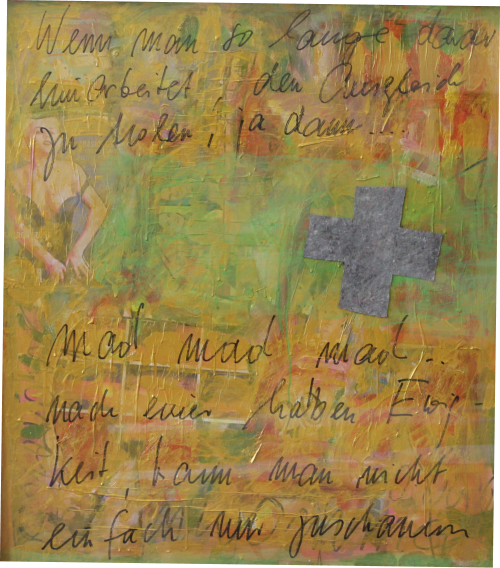 Wenn man so lange daran
hinarbeitet, den Ausgleich
zu holen, ja dann....
mad mad mad..
nach einer halben Ewig-
keit, kann man nicht
einfach nur zuschauen